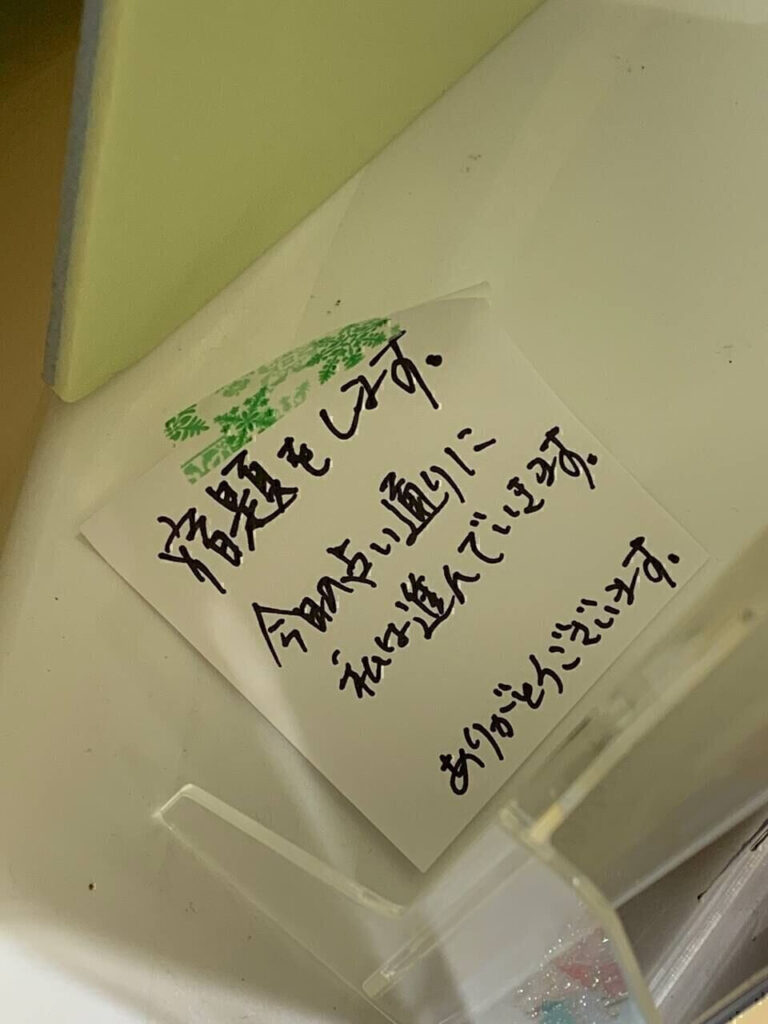 宿題をします。
今日の占い通りに
私は進んでいきます。
ありがとうございます。